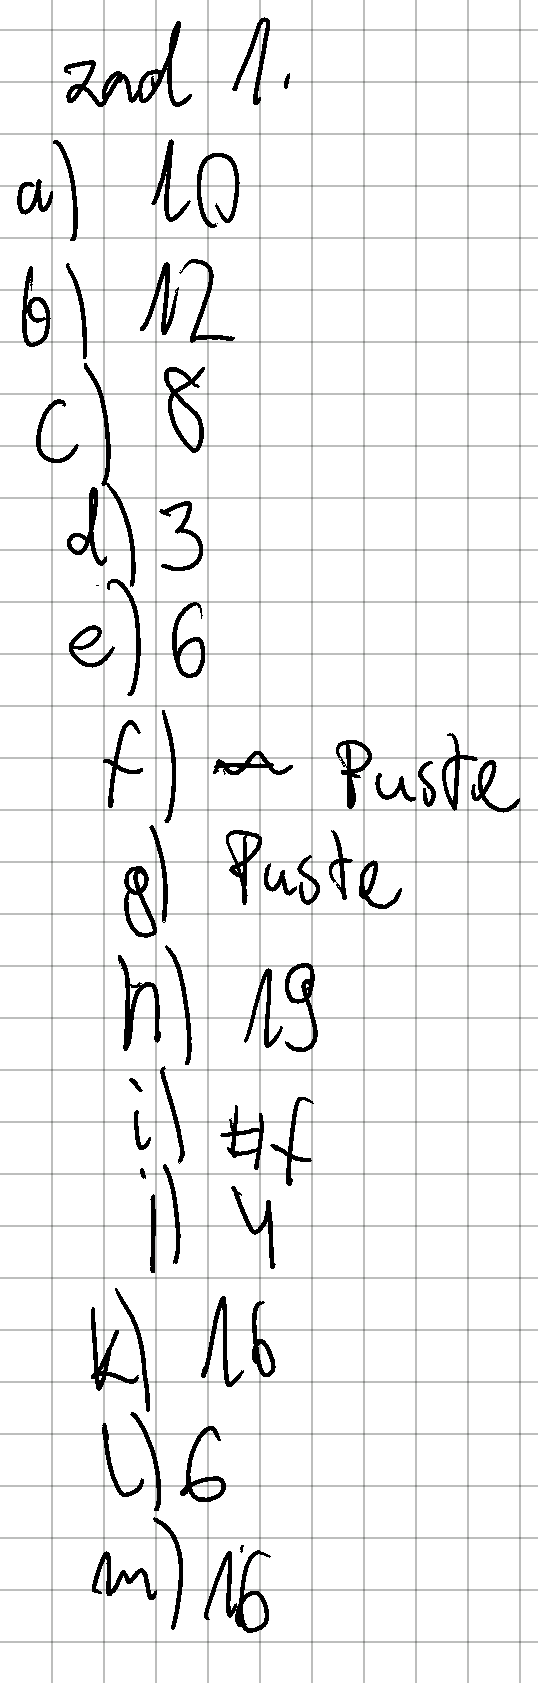 zad 1.
a) 10
b) 12
c) 8
d) 3
e) 6
f) Puste
g) Puste
h) 19
i) #f
j) 4
k) 16
l) 6
m) 16